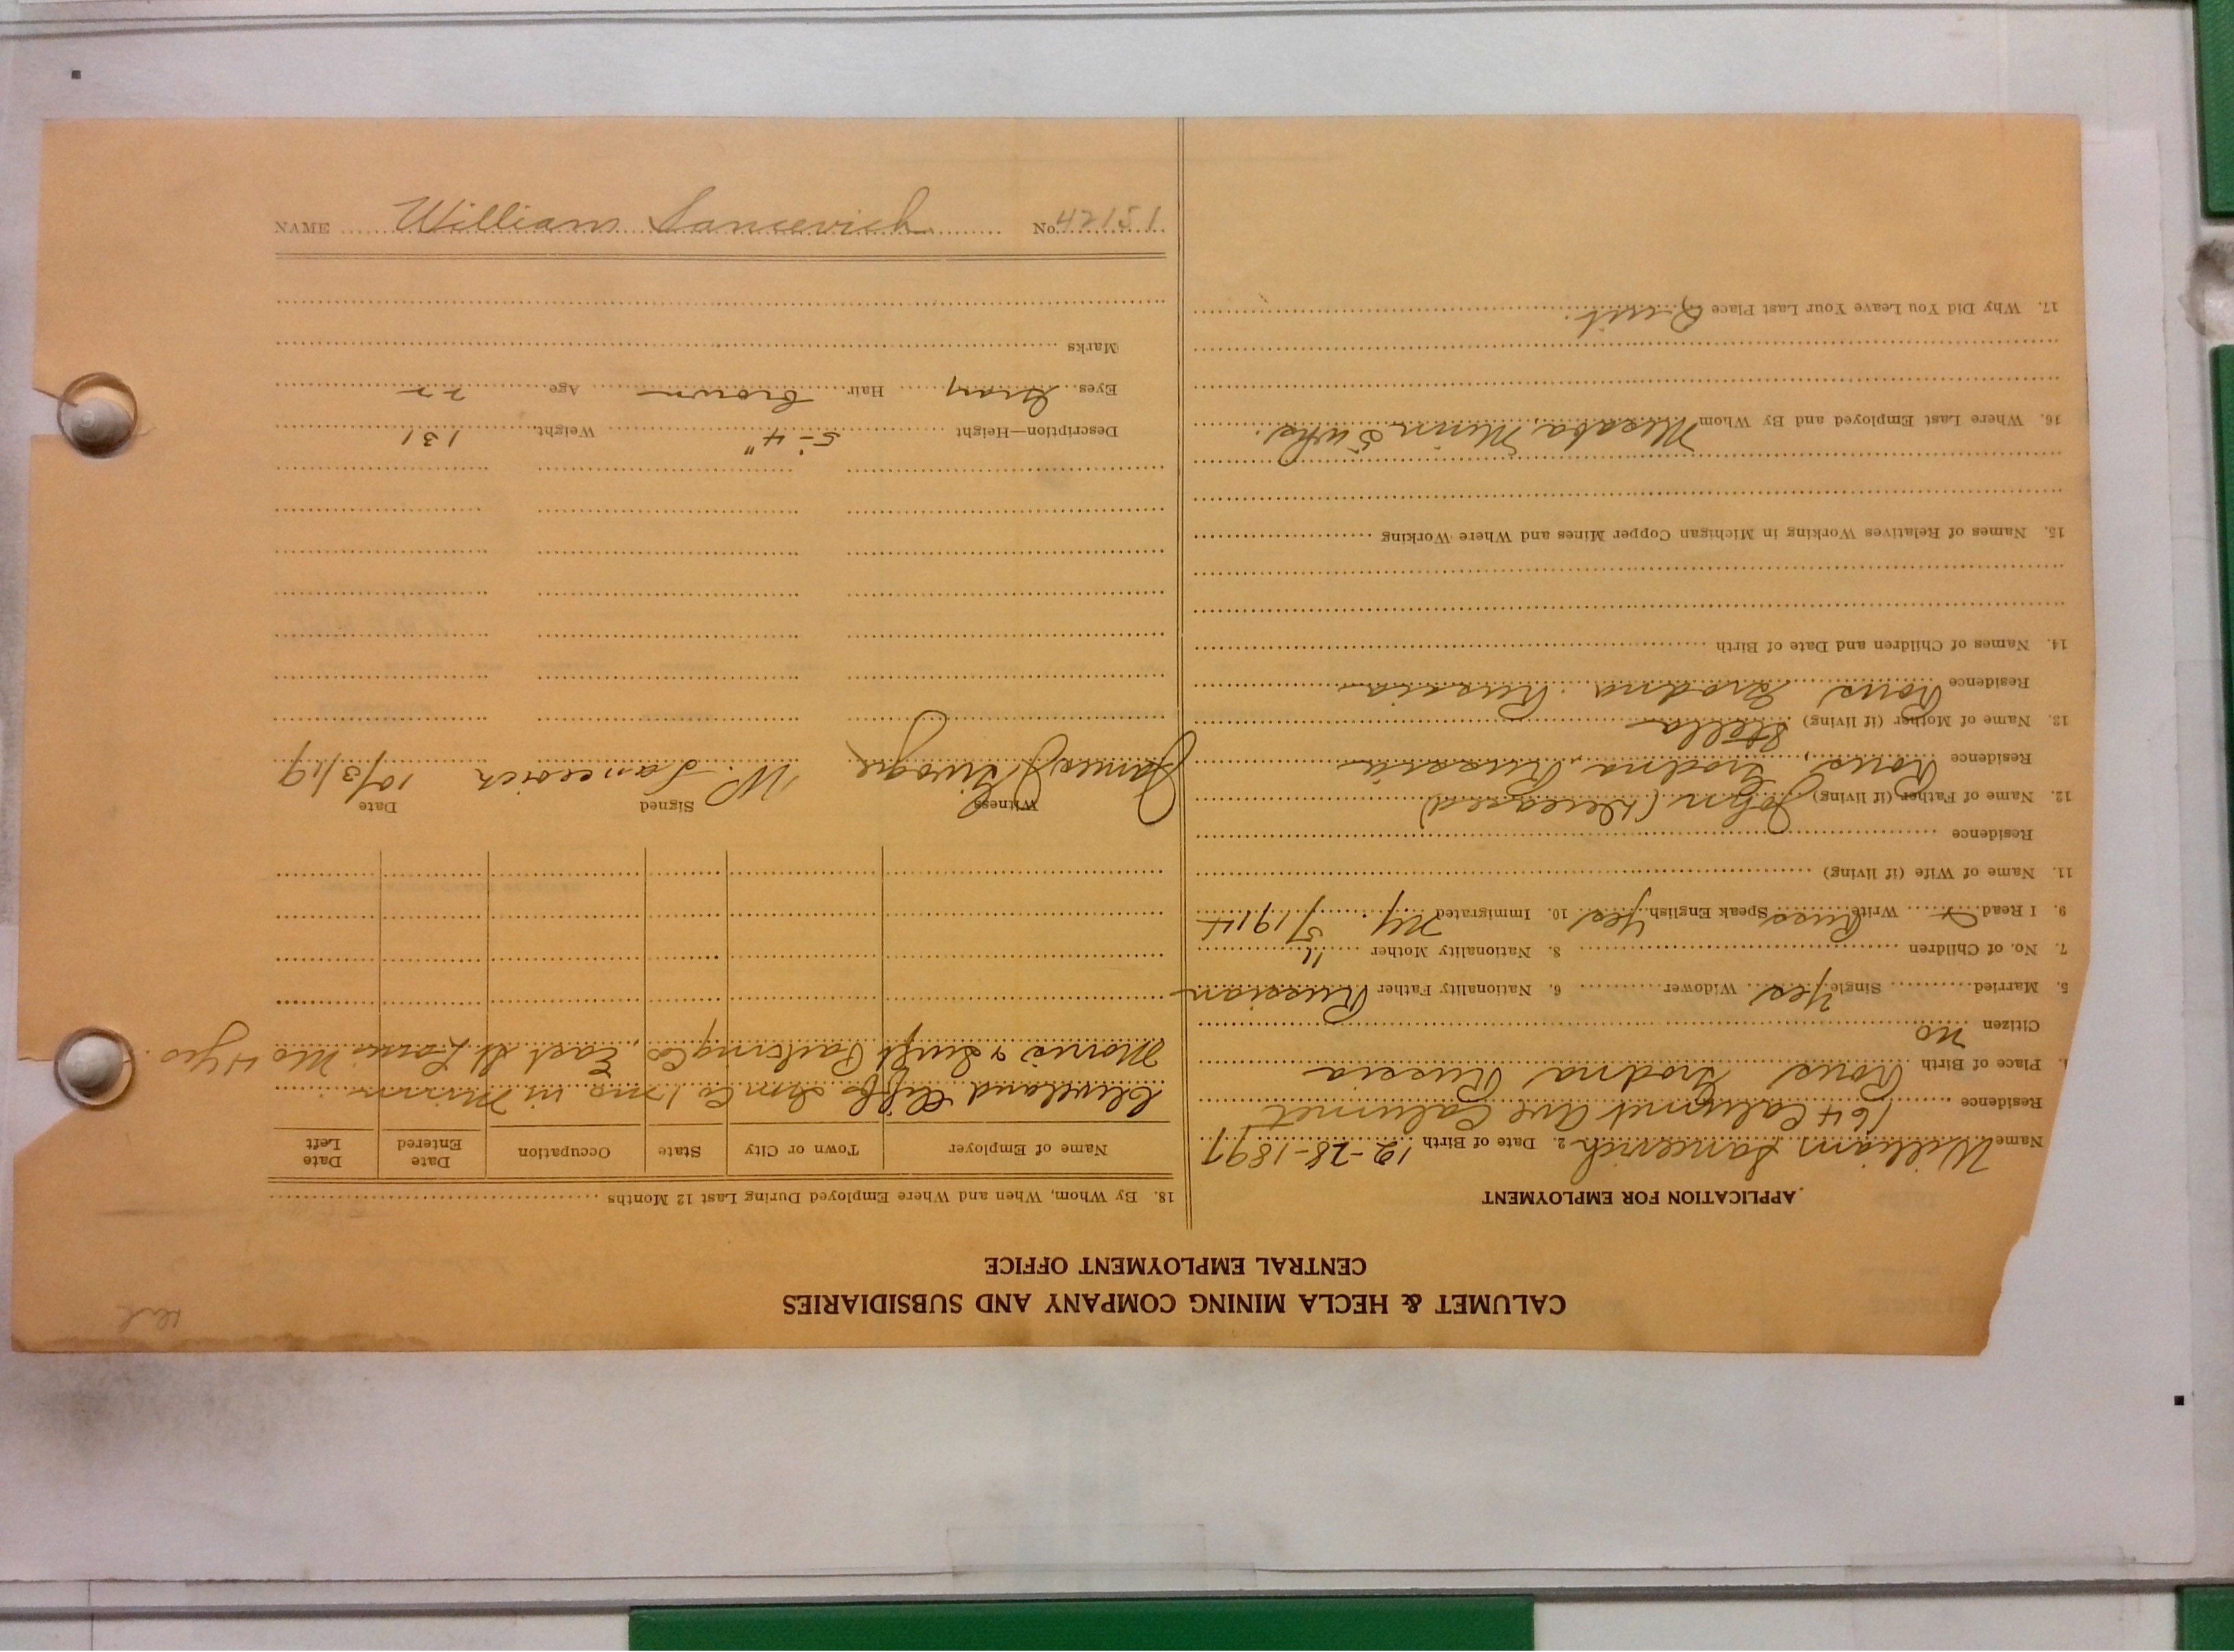 CALUMET & HECLA MINING COMPANY AND SUBSIDIARIES
CENTRAL EMPLOYMENT OFFICE
APPLICATION FOR EMPLOYMENT
Name William Sancevich 2. Date of Birth 12-28-1897
Residence 164 Calumet Ave Calumet
Place of Birth Rous Grodna Russia
Citizen no
5. Married Single Yes Widower 6. Nationality Father Russian
7. No. of Children 8. Nationality Mother "
9. I Read Write Russ Speak English Yes 10. Immigrated NY 5/1914
11. Name of Wife (if living)
Residence
12. Name of Father (if living) John (Deceased)
Residence Rous, Grodna, Russia
13. Name of Mother (if living) Stella
Residence Rous Grodna Russia
14. Names of Children and Date of Birth
15. Names of Relatives Working in Michigan Copper Mines and Where Working
16. Where Last Employed and By Whom Mesaba, Minn 5 wks.
17. Why Did You Leave Your Last Place Quit.
18. By Whom, When and Where Employed During Last 12 Months
Name of Employer Town or City State Occupation Date Entered Date Left
Cleveland Cliffs Irn Co 1 mo in Minn
Morris & Swift Packing Co, East St. Louis Mo 4 yrs.
Witness Signed Date
James W. Sancevich 10/3/19
Description—Height 5'-4" Weight 131
Eyes Gray Hair brown Age 22
Marks
NAME William Sancevich No. 42151